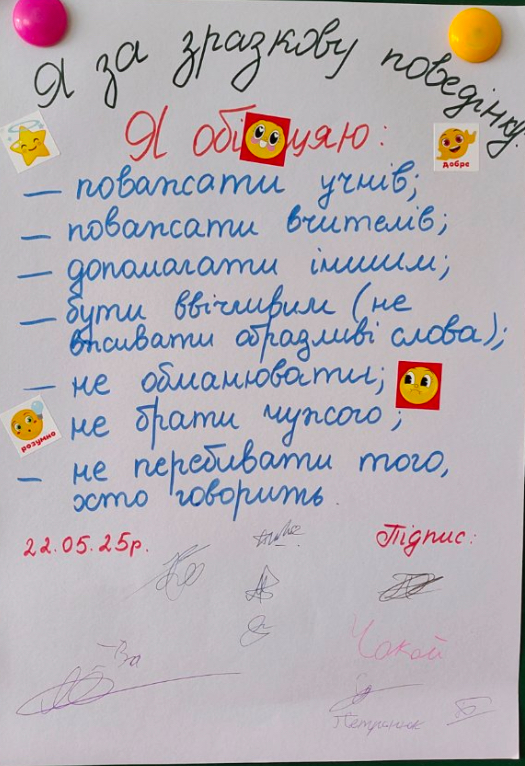 Я за зразкову поведінку!
Я обіцяю:
добре
— поважати учнів;
— поважати вчителів;
— допомагати іншим;
— бути ввічливим (не
вживати образливі слова);
— не обманювати;
не брати чужого;
розумно
— не перебивати того,
хто говорить.
22.05.25р.
Підпис:
Чакай
Петринюк